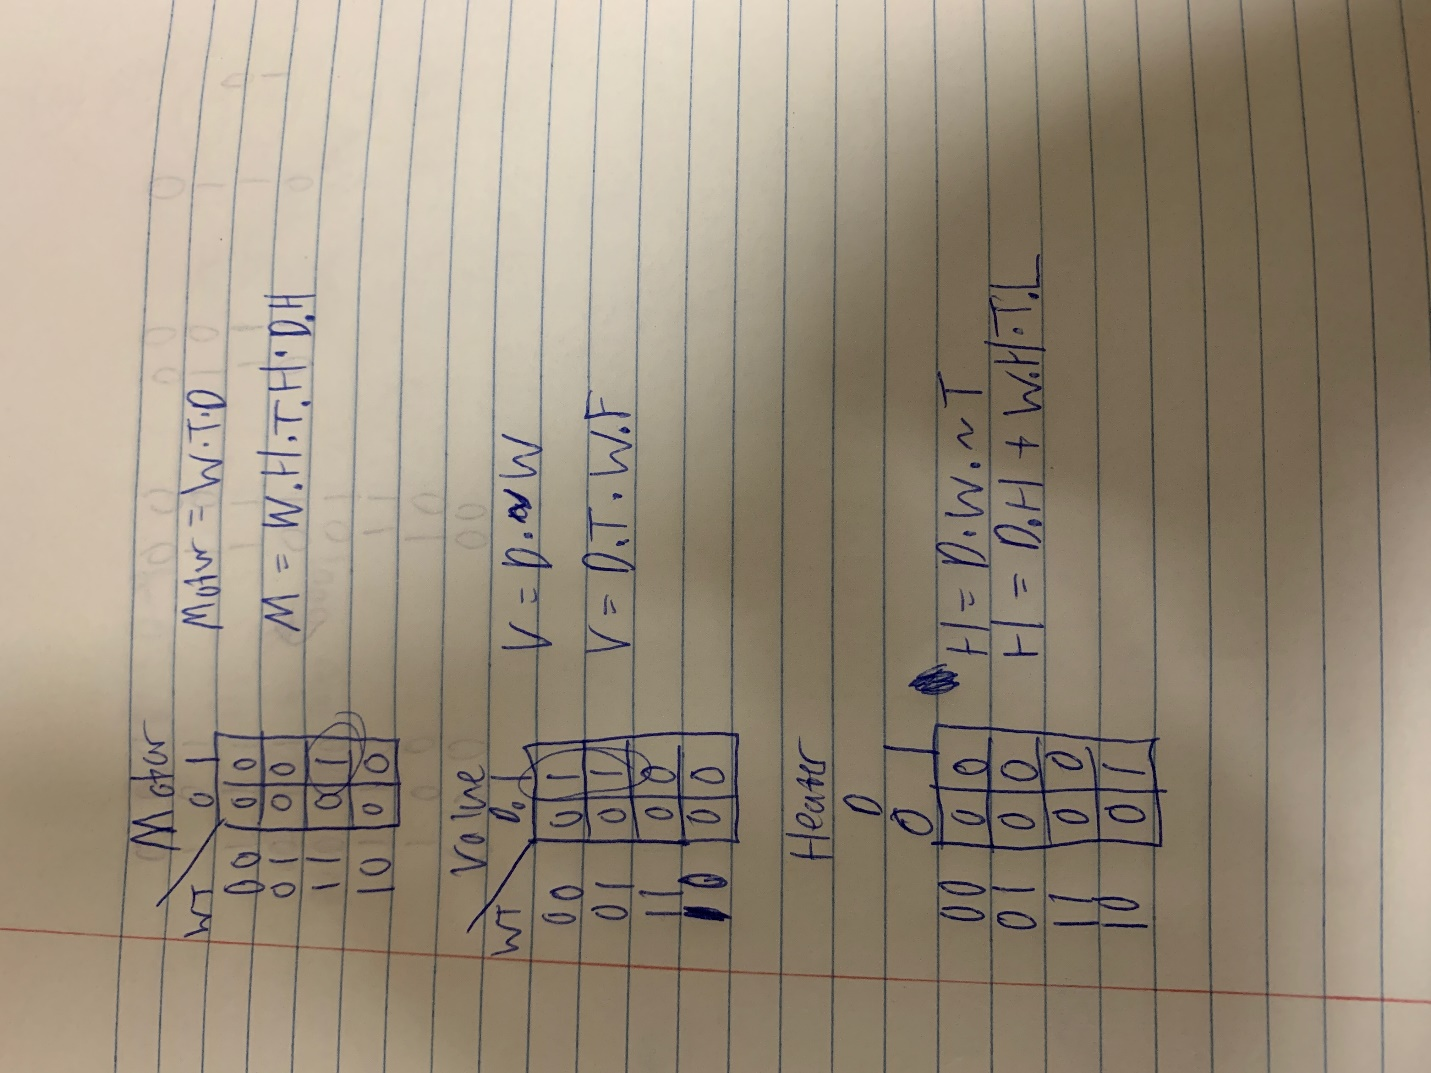 Motor
0 1
WT
00 0 0
01 0 0
11 0 1
10 0 0
Motor = W.T.D
M = W.H.T.H.D.H
Valve
D0 1
WT
00 0 1
01 0 1
11 0 0
10 0 0
V = D.~W
V = D.T.W.F
Heater
D
0 1
00 0 0
01 0 0
11 0 0
10 0 1
H = D.W.~T
H = D.H + W.H.T.L